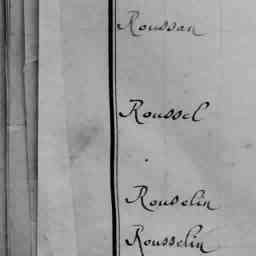 Roussan
Roussel
Rouselin
Rousselin